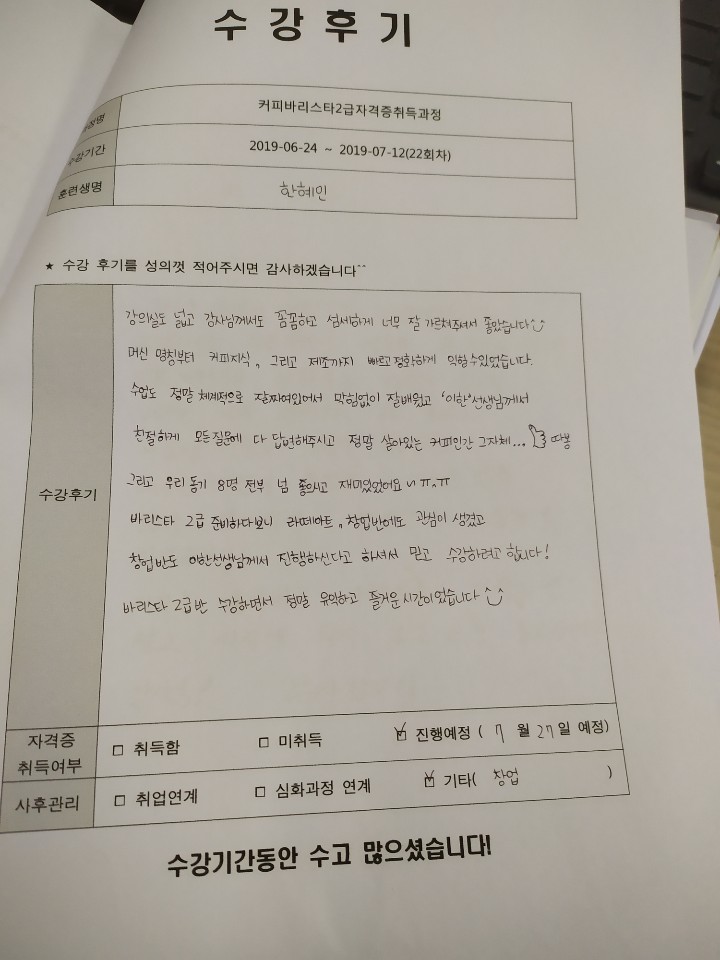 수강후기
정명
수강기간
훈련생명
커피바리스타2급자격증취득과정
2019-06-24 ~ 2019-07-12(22회차)
한혜인
★ 수강 후기를 성의껏 적어주시면 감사하겠습니다^^
수강후기
강의실도 넓고 강사님께서도 꼼꼼하고 섬세하게 너무 잘 가르쳐주셔서 좋았습니다
머신 명칭부터 커피지식, 그리고 제조까지 빠르고 정확하게 익힐수있었습니다.
수업도 정말 체계적으로 잘짜여있어서 막힘없이 잘배웠고 '이한'선생님께서
친절하게 모든질문에 다 답변해주시고 정말 살아있는 커피인간 그자체... 따봉
그리고 우리 동기 8명 전부 넘 좋으시고 재미있었어요~ ㅠ.ㅠ
바리스타 2급 준비하다보니 라떼아트, 창업반에도 관심이 생겼고
창업반도 이한선생님께서 진행하신다고 하셔서 믿고 수강하려고 합니다!
바리스타 2급반 수강하면서 정말 유익하고 즐거운 시간이었습니다
자격증
취득여부
□ 취득함 □ 미취득 ☑ 진행예정 ( 7 월 27 일 예정)
사후관리
□ 취업연계 □ 심화과정 연계 ☑ 기타( 창업 )
수강기간동안 수고 많으셨습니다!